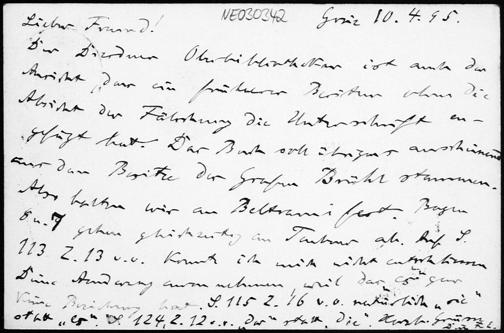 NE030342
Lieber Freund! Graz 10.4.95.
Der Dresdner Oberbibliothekar ist auch der
Ansicht, dass ein früherer Besitzer ohne die
Absicht der Fälschung die Unterschrift ein-
gefügt hat. Das Buch soll übrigens anscheinend
aus dem Besitze des Grafen Brühl stammen.
Also halten wir an Beltrami fest. Bogen
6 u. 7 gehen gleichzeitig an Teubner ab. Auf S.
113 Z. 13 v.o. konnte ich mich nicht entschliessen
Deine Änderung anzunehmen, weil das „es" gar
keine Beziehung hat. S. 115 Z. 16 v.o. natürlich „sie"
statt „es" S. 124, Z. 12 v.o. „der" statt „die"